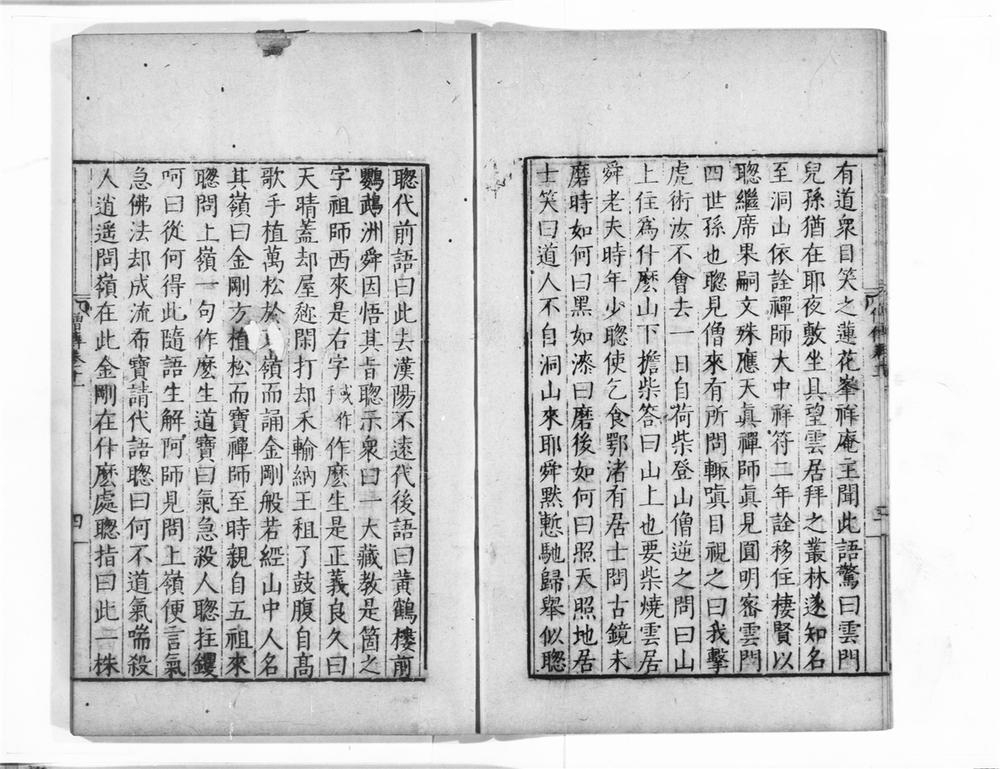 有道衆目笑之蓮花峯祥庵主聞此語驚曰雲門
兒孫猶在耶夜敷坐具望雲居拜之叢林遂知名
至洞山依詮禪師大中祥符二年詮移住棲賢以
聰繼席果嗣文殊應天眞禪師眞見圓明密雲門
四世孫也聰見僧來有所問輙嗔目視之曰我擊
虎術汝不會去一日自荷柴登山僧逆之問曰山
上住爲什麽山下擔柴答曰山上也要柴燒雲居
舜老夫時年少聰使乞食鄂渚有居士問古鏡未
磨時如何曰黑如漆曰磨後如何曰照天照地居
士笑曰道人不自洞山來耶舜默慙馳歸舉似聰
聰代前語曰此去漢陽不遠代後語曰黃鶴樓前
鸚鵡洲舜因悟其旨聰示衆曰一大藏教是箇之
字祖師西來是右字作麽生是正義良久曰
天晴蓋却屋趂閑打却禾輸納王租了鼓腹自高
歌手植萬松於嶺而誦金剛般若經山中人名
其嶺曰金剛方植松而寶禪師至時親自五祖來
聰問上嶺一句作麽生道寶曰氣急殺人聰拄钁
呵曰從何得此隨語生解阿師見問上嶺便言氣
急佛法却成流布寶請代語聰曰何不道氣喘殺
人逍遥問嶺在此金剛在什麽處聰指曰此一株
僧傳卷十一
四